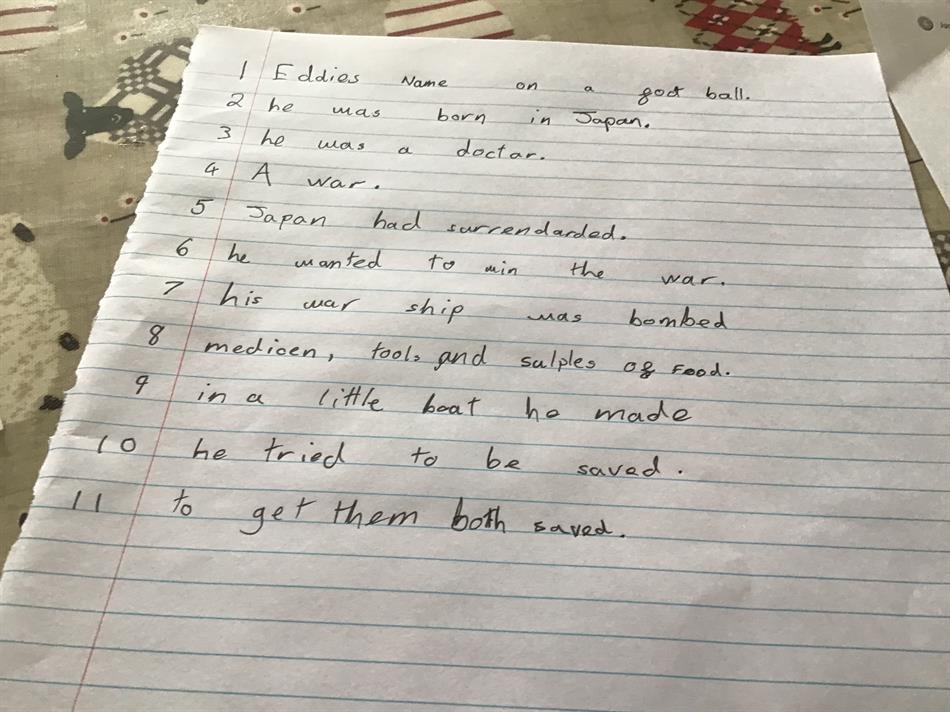 1 Eddies Name on a goot ball.
2 he was born in Japan.
3 he was a doctar.
4 A war.
5 Japan had surrendarded.
6 he wanted to win the war.
7 his war ship was bombed
8 medicen, tools and salples of Food.
9 in a little boat he made
10 he tried to be saved.
11 to get them both saved.